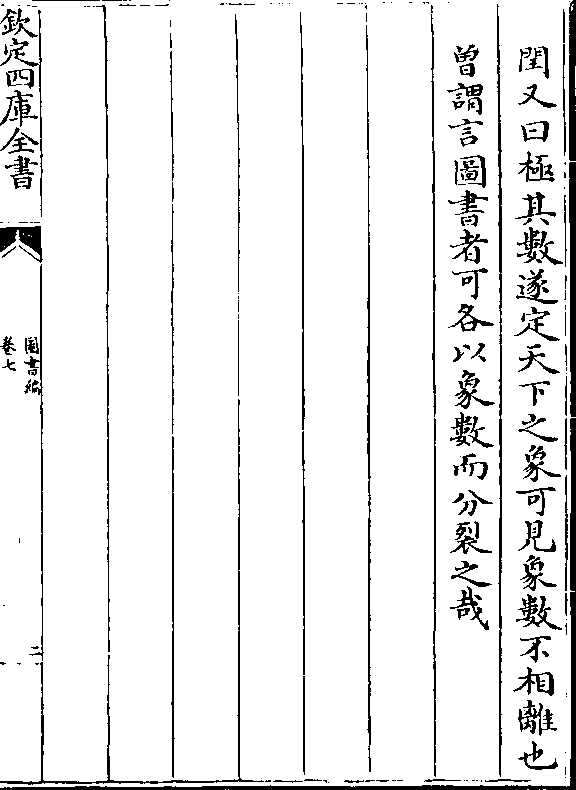 閏又曰極其數遂定天下之象可見象數不相離也
曾謂言圖書者可各以象數而分裂之哉
欽定四庫全書
圖書編
卷七
二